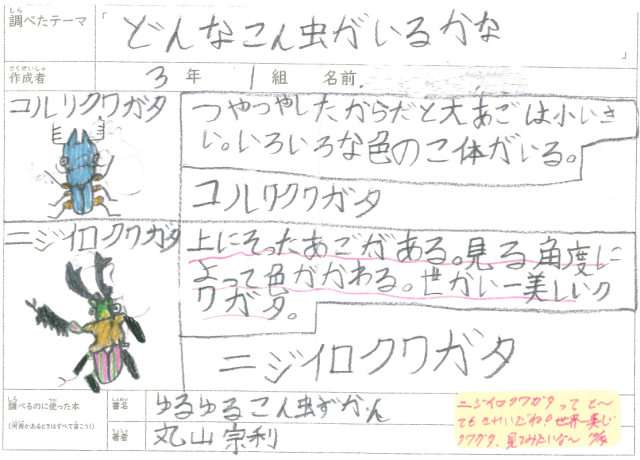 しら
調べたテーマ
「どんなこん虫がいるかな」
さくせいしゃ
作成者
3年 1組 名前
コルリクワガタ
つやつやしたからだと大あごは小いさ
い。いろいろな色のこ体がいる。
コルリクワガタ
ニジイロクワガタ
上にそったあごがある。見る角度に
よって色がかわる。世かい一美しいク
ワガタ。
ニジイロクワガタ
しら つか ほん
調べるのに使った本
(何冊かあるときはすべて書こう!)
しょめい
書名
ゆるゆるこん虫ずかん
ちょしゃ
著者
丸山宗利
ニジイロクワガタって と〜
てもきれいだね。世界一美しい
クワガタ、見てみたいな〜